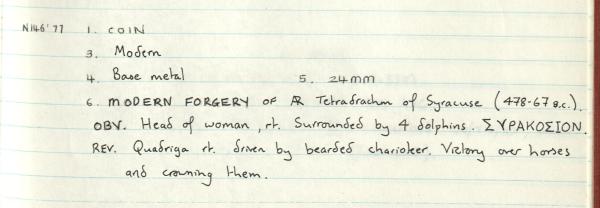 N146'77 1. COIN
3. Modern
4. Base metal 5. 24mm
6. MODERN FORGERY OF AR Tetradrachm of Syracuse (478-67 B.C.).
OBV. Head of woman, rt. Surrounded by 4 dolphins. ΣΥΡΑΚΟΣΙΟΝ.
REV. Quadriga rt. driven by bearded charioteer. Victory over horses
and crowning them.